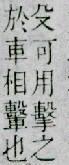 殳可用擊之
於車相轚也